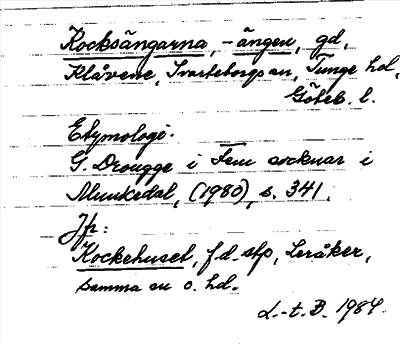 Kocksängarna, -ängen, gd,
Klåvene, Svarteborgs sn, Tunge hd,
Göteb. l.
Etymologi:
G. Drougge i Fem socknar i
Munkedal, (1980), s. 341.
Jfr:
Kockehuset, f.d. stp, Leråker,
samma sn o. hd.
L.-t. B. 1984.